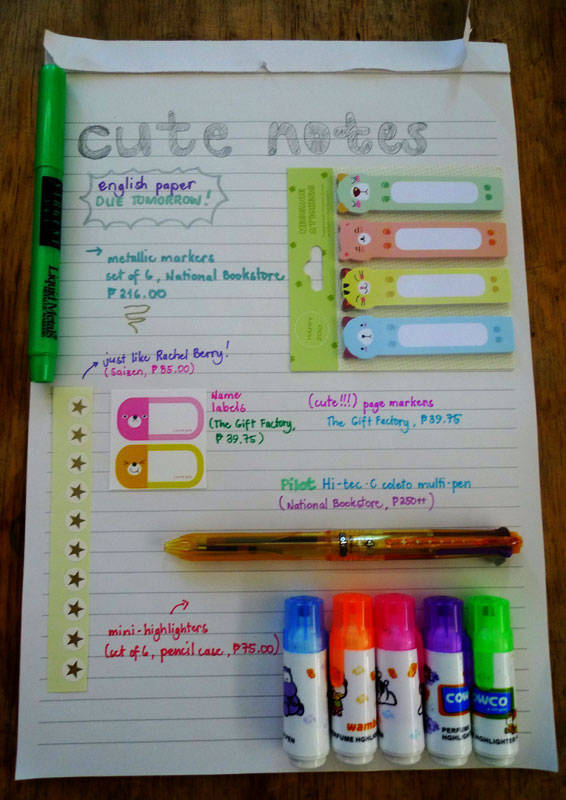 cute notes
english paper
DUE TOMORROW!
→ metallic markers
set of 6, National Bookstore
₱216.00
just like Rachel Berry!
(Saizen, ₱85.00)
Name
labels
(The Gift Factory,
₱39.75)
(cute!!!) page markers
The Gift Factory, ₱39.75
Pilot Hi-tec-C coleto multi-pen
(National Bookstore, ₱250++)
mini-highlighters
(set of 6, pencil case, ₱75.00)
Liquid Metal
HAPPY
ZOO
wamb
COW
OWCO
PEN
PERFUME HGHLI
PERFUME
HGHLIGH
HIGHLIGHTER